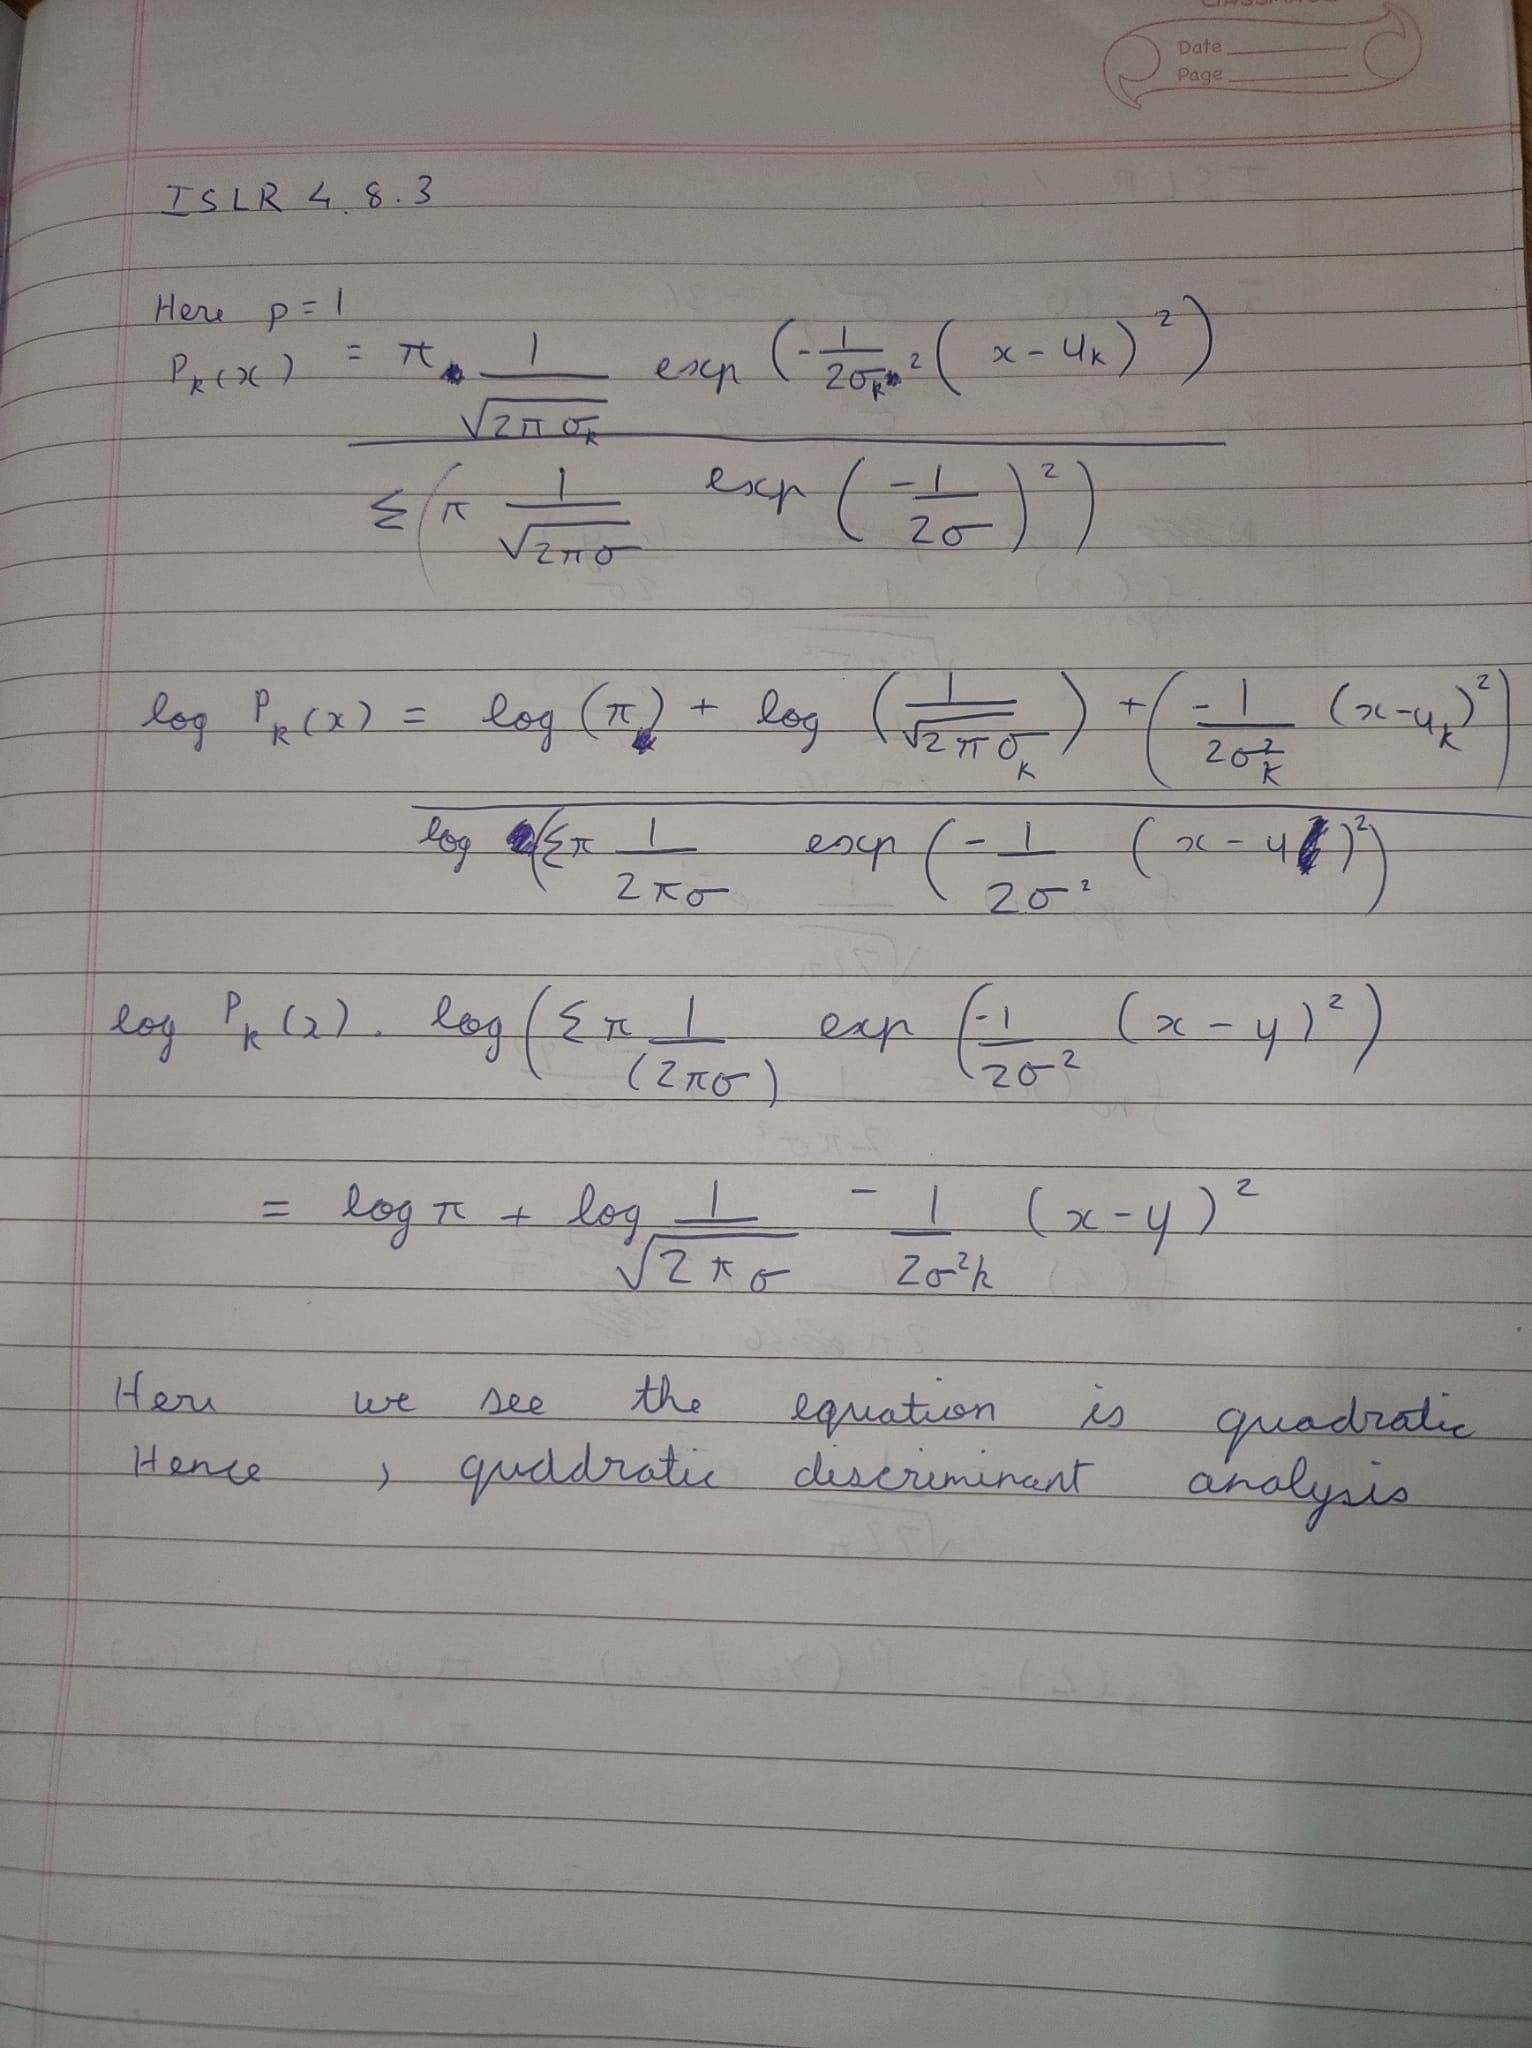 Date
Page
ISLR 4.8.3
Here p = 1
P_k(x) = π 1/√(2πσ_k) exp (-1/2σ_k² (x - u_k)²)
Σ(π 1/√(2πσ) exp (-1/2σ)²)
log P_k(x) = log (π) + log (1/√(2πσ_k)) + (-1/2σ²_k (x-u_k)²)
log (Σπ 1/2πσ exp (-1/2σ² (x - u)²)
log P_k(x). log (Σπ 1/(2πσ) exp (-1/2σ² (x - y)²)
= log π + log 1/√(2πσ) - 1/2σ²k (x-y)²
Here we see the equation is quadratic
Hence , quddratic discriminant analysis